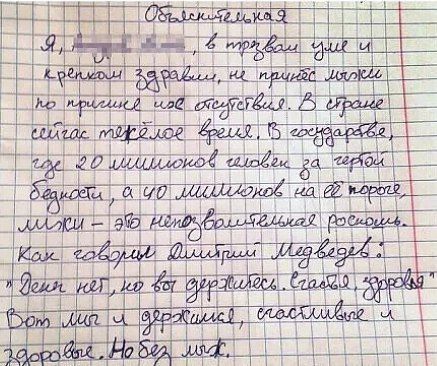 Объяснительная
Я, , в трезвом уме и
крепком здравии, не принёс лыжи
по причине их отсутствия. В стране
сейчас тяжёлое время. В государстве,
где 20 миллионов человек за чертой
бедности, а 40 миллионов на её пороге,
лыжи – это непозволительная роскошь.
Как говорил Дмитрий Медведев:
"Денег нет, но вы держитесь. Счастья, здоровья"
Вот мы и держимся, счастливые и
здоровые. Но без лыж.